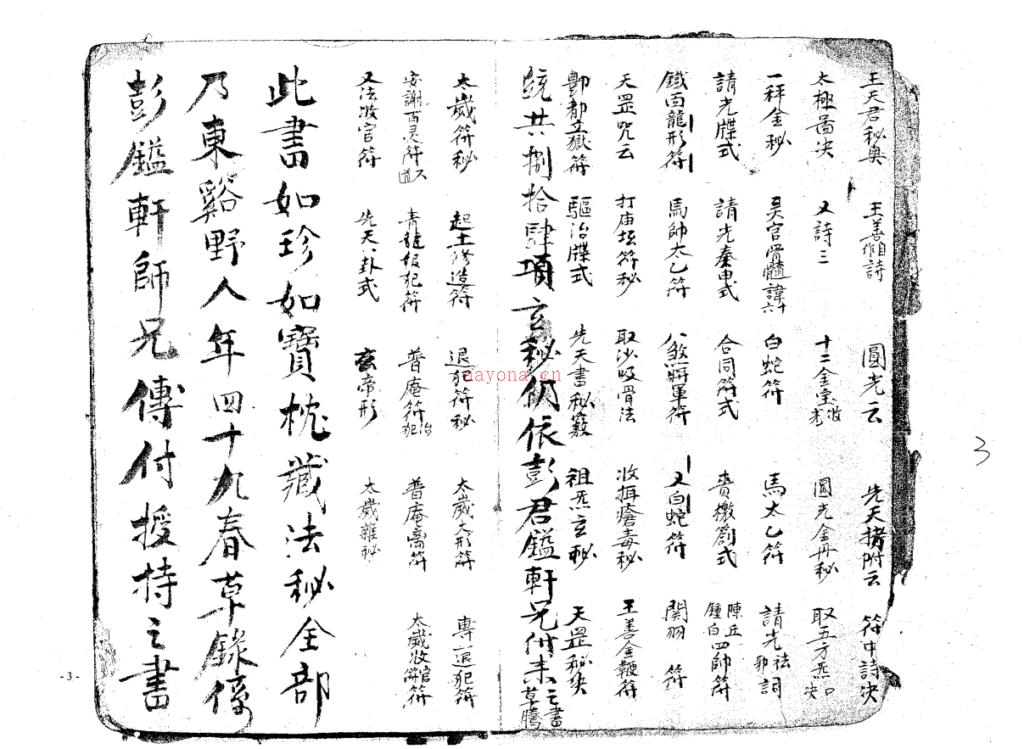 王天君秘奥 王善自詩 圓光云 先天捛附云 符中詩决
太極畐决 又詩三 十二金堂 圆光金丹秘 取五方炁口决
一秤金秘 吴宫骨髓諱六十 白蛇符 馬太乙符 請光祛邪詞
請光牒式 請光奏申式 合同符式 賫檄劄式 陳丘鍾白四帥符
鐵面龍形符 馬帥太乙符 八煞將軍符 又白蛇符 関羽符
天罡咒云 打庙坛符秘 取沙吸骨法 收瘡毒秘 王善金鞭符
酆都立獄符 驅治牒式 先天書秘竅 祖炁玄秘 天罡秘决
統共捌拾肆項玄秘仍依彭君鎰軒兄付来之書草騰
太歲符秘 起土修造符 退犯符秘 太歲大形符 專一退犯符
安謝百灵符 青龍报犯符 普庵符治犯 普庵符 太歲收官符
又法收官符 先天八卦式 玄帝形 太歲雜秘
此書如珍如寶枕藏法秘全部
乃東谿野人年四十九春草録係
彭鎰軒師兄傳付授持之書
nayona.cn
3
-3-